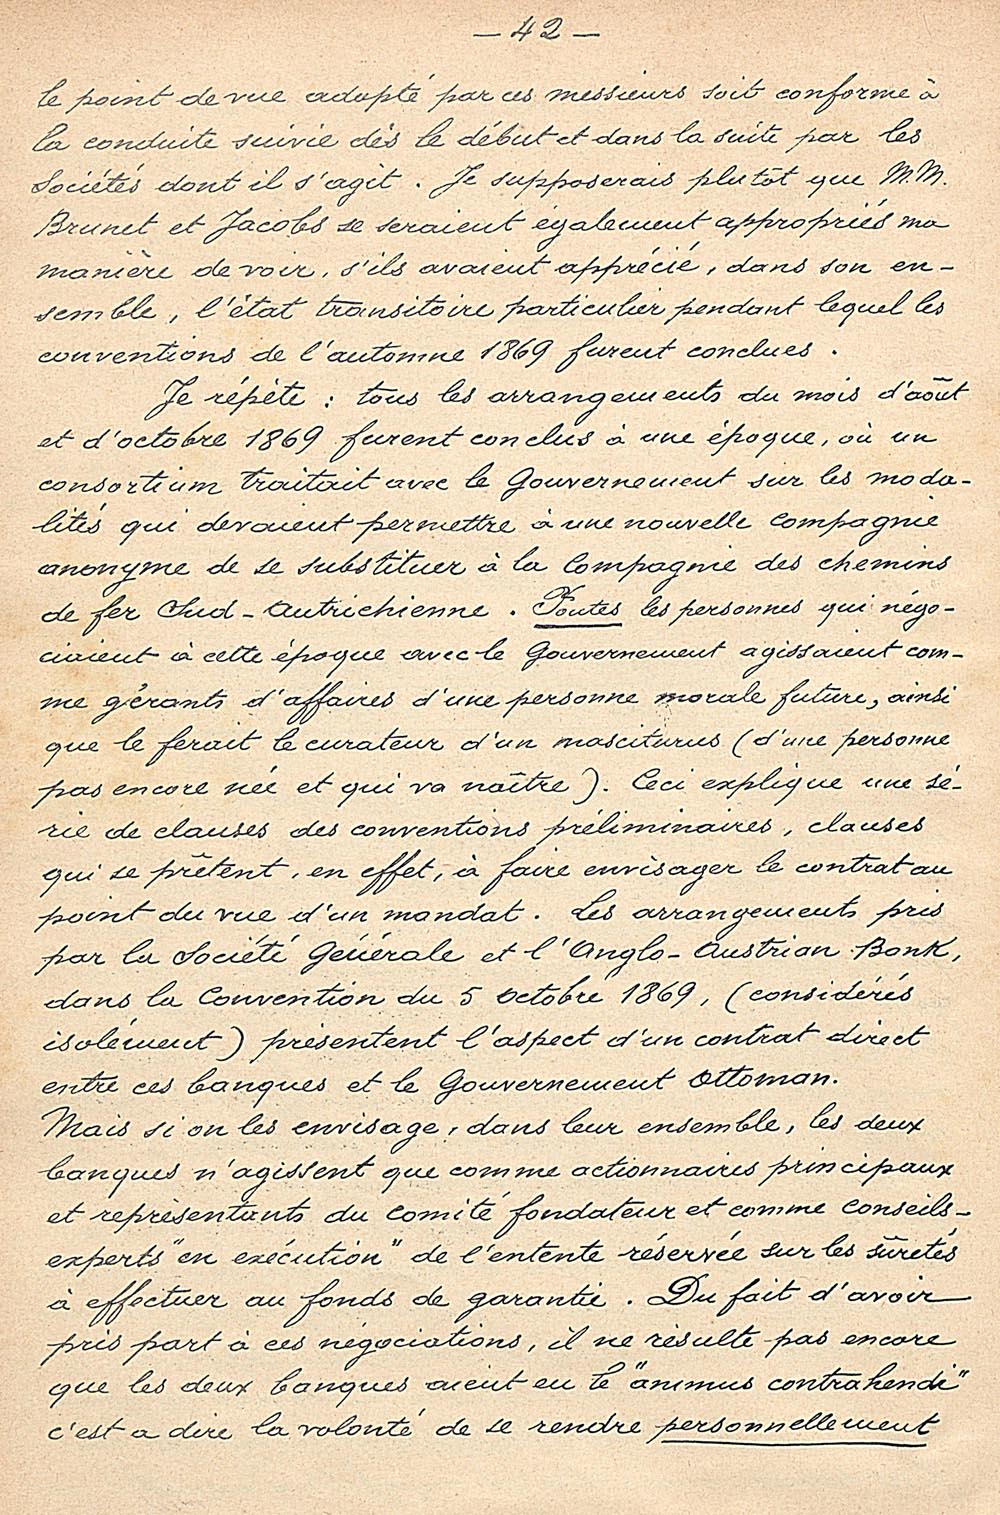 — 42 —
le point de vue adopté par ces messieurs soit conforme à
la conduite suivie dès le début et dans la suite par les
Sociétés dont il s'agit. Je supposerais plutôt que M.M.
Brunet et Jacobs se seraient également appropriés ma
manière de voir, s'ils avaient apprécié, dans son en-
semble, l'état transitoire particulier pendant lequel les
conventions de l'automne 1869 furent conclues.
Je répète : tous les arrangements du mois d'août
et d'octobre 1869 furent conclus à une époque, où un
consortium traitait avec le Gouvernement sur les moda-
lités qui devaient permettre à une nouvelle compagnie
anonyme de se substituer à la Compagnie des chemins
de fer Sud-Autrichienne. Toutes les personnes qui négo-
ciaient à cette époque avec le Gouvernement agissaient com-
me gérants d'affaires d'une personne morale future, ainsi
que le ferait le curateur d'un masciturus (d'une personne
pas encore née et qui va naître). Ceci explique une sé-
rie de clauses des conventions préliminaires, clauses
qui se prêtent, en effet, à faire envisager le contrat au
point du vue d'un mandat. Les arrangements pris
par la Société Générale et l'Anglo-Austrian Bank,
dans la Convention du 5 octobre 1869, (considérés
isolément) présentent l'aspect d'un contrat direct
entre ces banques et le Gouvernement Ottoman.
Mais si on les envisage, dans leur ensemble, les deux
banques n'agissent que comme actionnaires principaux
et représentants du comité fondateur et comme conseils-
experts "en exécution" de l'entente réservée sur les sûretés
à effectuer au fonds de garantie. Du fait d'avoir
pris part à ces négociations, il ne résulte pas encore
que les deux banques aient eu le "animus contrahendi"
c'est a dire la volonté de se rendre personnellement